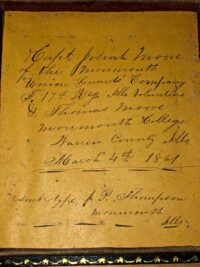 Capt. Josiah Moore
of the Monmouth
Union Guards Company
F, 17th Reg Ills Volunteers
& Thomas Moore
Monmouth College
Warren County Ills
March 4th 1861
Ambrotype J. P. Thompson
Monmouth
Ills